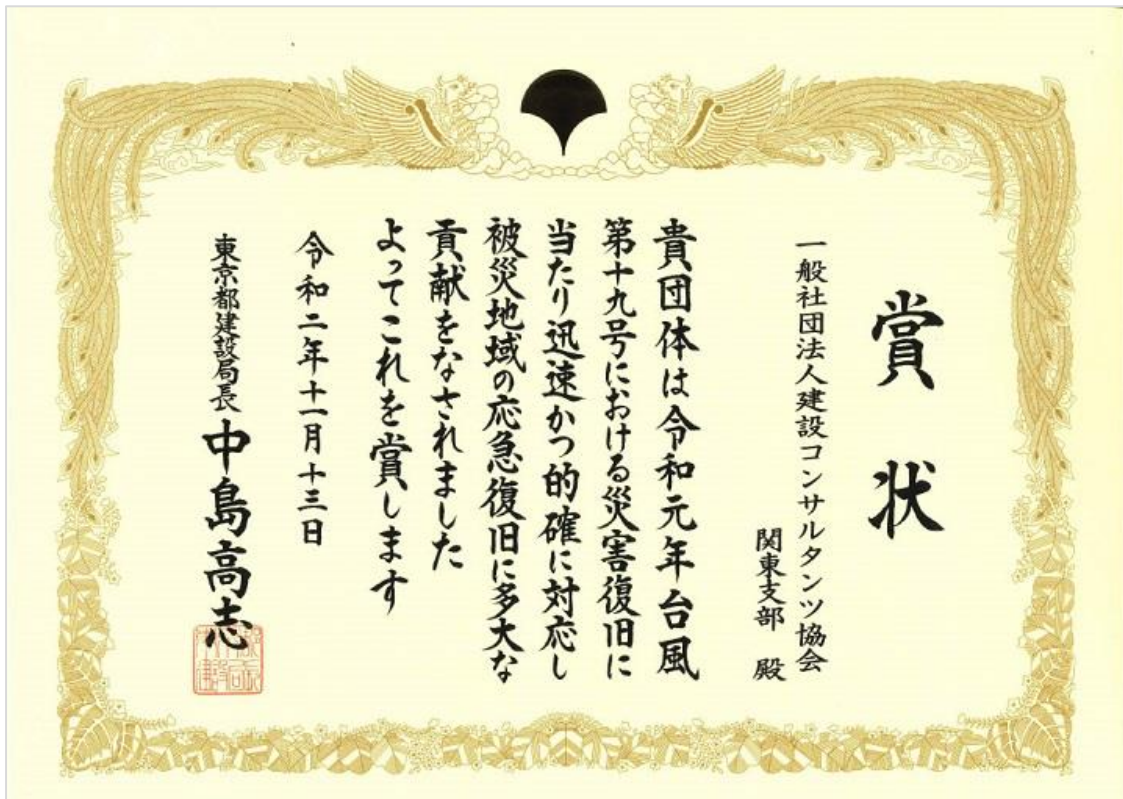 賞状
一般社団法人建設コンサルタンツ協会
関東支部 殿
貴団体は令和元年台風
第十九号における災害復旧に
当たり迅速かつ的確に対応し
被災地域の応急復旧に多大な
貢献をなされました
よってこれを賞します
令和二年十一月十三日
東京都建設局長 中島高志